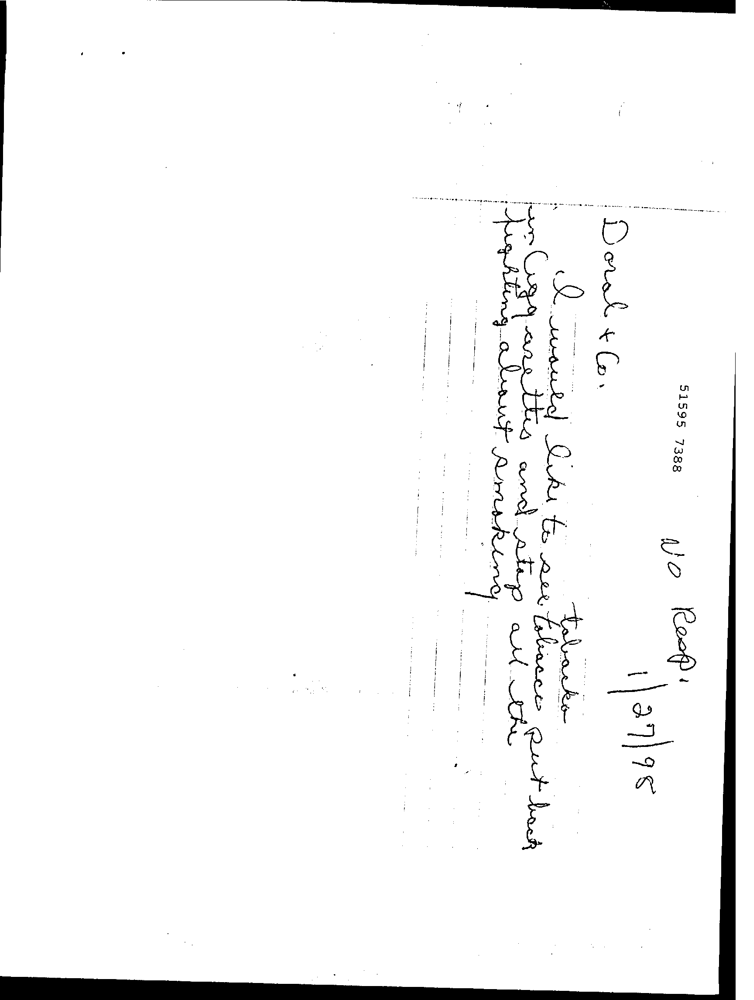 51595 7388
No Resp.
1/27/98
Doral & Co.
tobacko
I would like to see tobacco put back
in Ciggarettes and stop all the
fighting about smoking